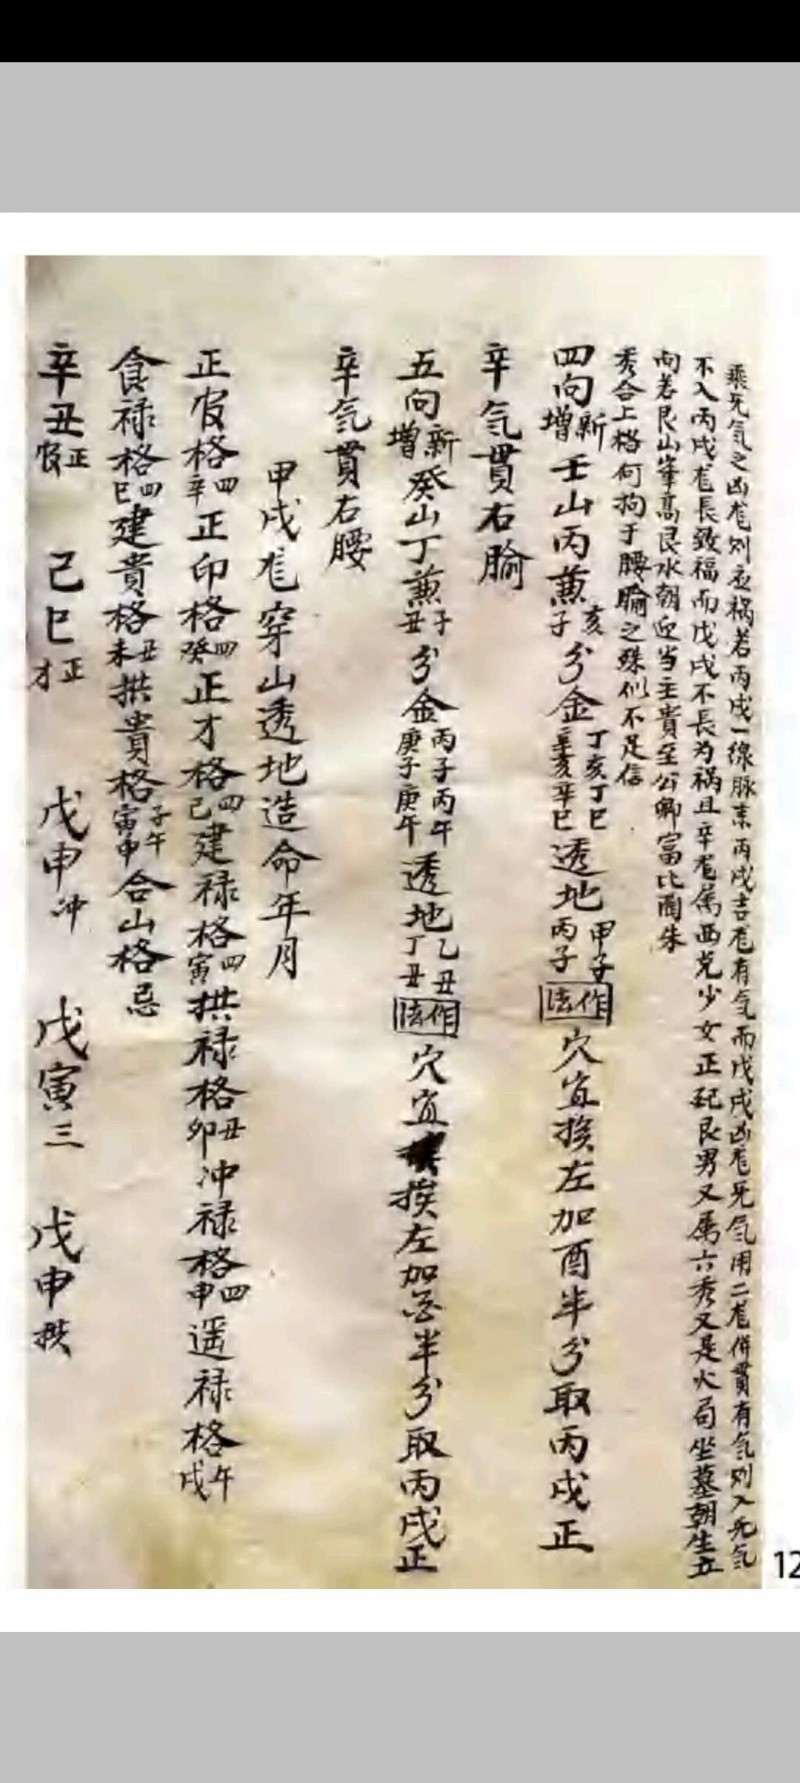 乘死气之凶龙则衣祸若丙戌一線脉来丙戌吉龙有气而戊戌凶龙死气用二龙併貫有气则入死气
不入丙戌龙長致福而戊戌不長为祸且辛龙属西兌少女正配艮男又属六秀又是火局坐墓朝生立
向若艮山峯高艮水朝迎当主貴至公卿富比陶朱
秀合上格何拘于腰腧之殊似不足信
四向新增壬山丙兼亥子分金丁亥丁巳辛亥辛巳透地甲子丙子作法穴宜挨左加酉半分取丙戌正
辛气貫右腧
五向新增癸山丁兼子丑分金丙子丙午庚子庚午透地乙丑丁丑作法穴宜挨左加半分取丙戌正
辛气貫右腰
甲戌龙穿山透地造命年月
正官格四辛正印格四癸正才格四己建禄格四寅拱禄格丑卯冲禄格四申遥禄格午戌
食禄格四巳建貴格丑未拱貴格子午寅申合山格忌
辛丑正官 己巳正才 戊申冲 戊寅三 戊申拱
12